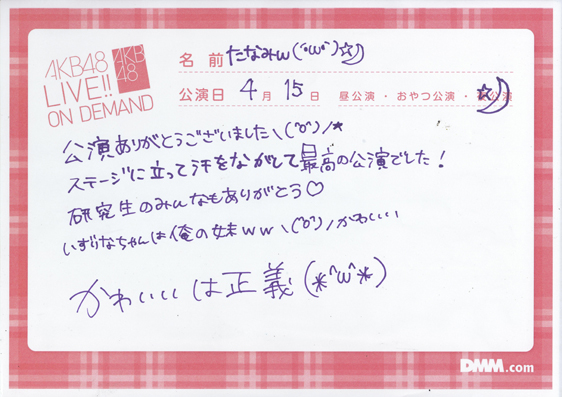 AKB48
LIVE!!
ON DEMAND
AKB
48
名前 たなみん(´ω`)☆☽
公演日 4月 15日 昼公演・おやつ公演・夜公演
公演ありがとうございました\(^o^)/*
ステージに立って汗をながして最高の公演でした!
研究生のみんなもありがとう♡
いずりなちゃんは俺の妹ww\(^o^)/かわいい
かわいいは正義(*^ω^*)
DMM.com